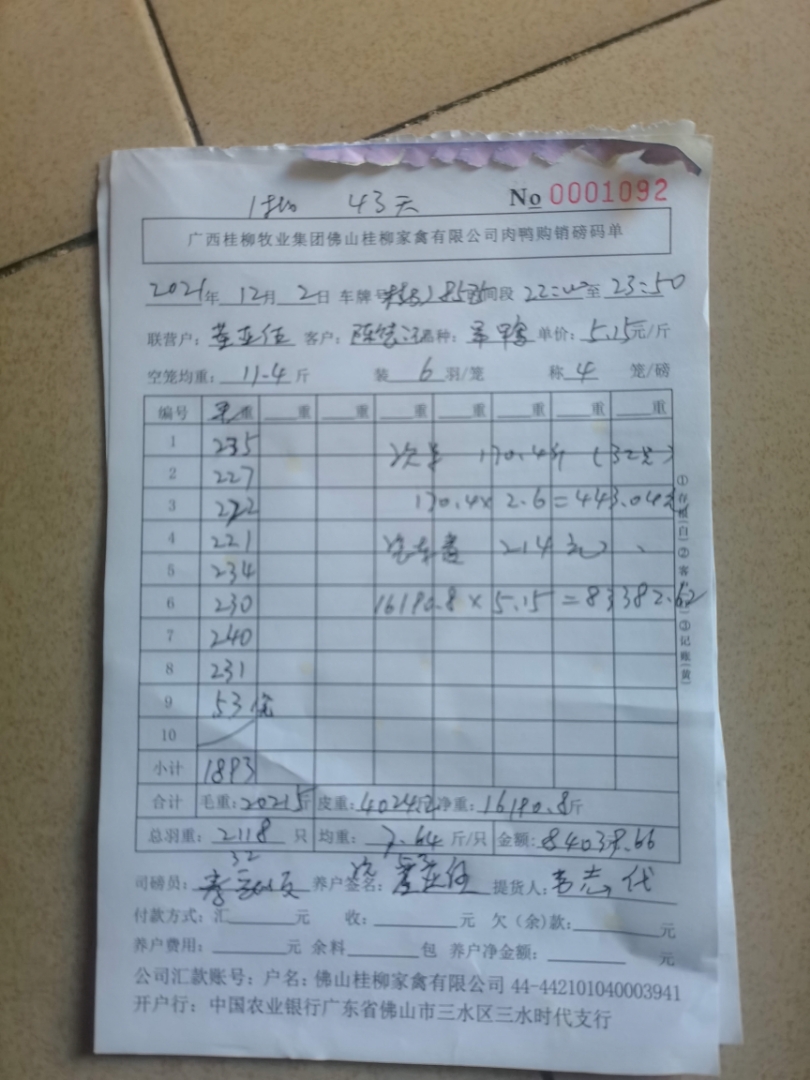 43天 No 0001092
广西桂柳牧业集团佛山桂柳家禽有限公司肉鸭购销磅码单
2021年 12月 2日 车牌号 时间段 22:00至 23:50
联营户: 客户: 品种: 单价: 5.15元/斤
空笼均重: 11.4 斤 装 6 羽/笼 称 4 笼/磅
编号 毛重 重 重 重 重 重 重 重
1 235
次 170.4斤 (32只)
2 227
3 222 170.4× 2.6=443.04元
4 221
214元
5 234
6 230 16190.8×5.15=83382.62
7 240
8 231
9 53
10
小计 1893
合计 毛重: 20215斤 皮重: 4024 净重: 16190.8斤
总羽重: 2118 只 均重: 7.64 斤/只 金额: 84039.66
32
司磅员: 养户签名: 提货人: 代
付款方式: 汇 元 收: 元 欠(余)款: 元
养户费用: 元 余料 包 养户净金额: 元
公司汇款账号: 户名: 佛山桂柳家禽有限公司 44-442101040003941
开户行: 中国农业银行广东省佛山市三水区三水时代支行
①存根(白)②客 ③记账(黄)